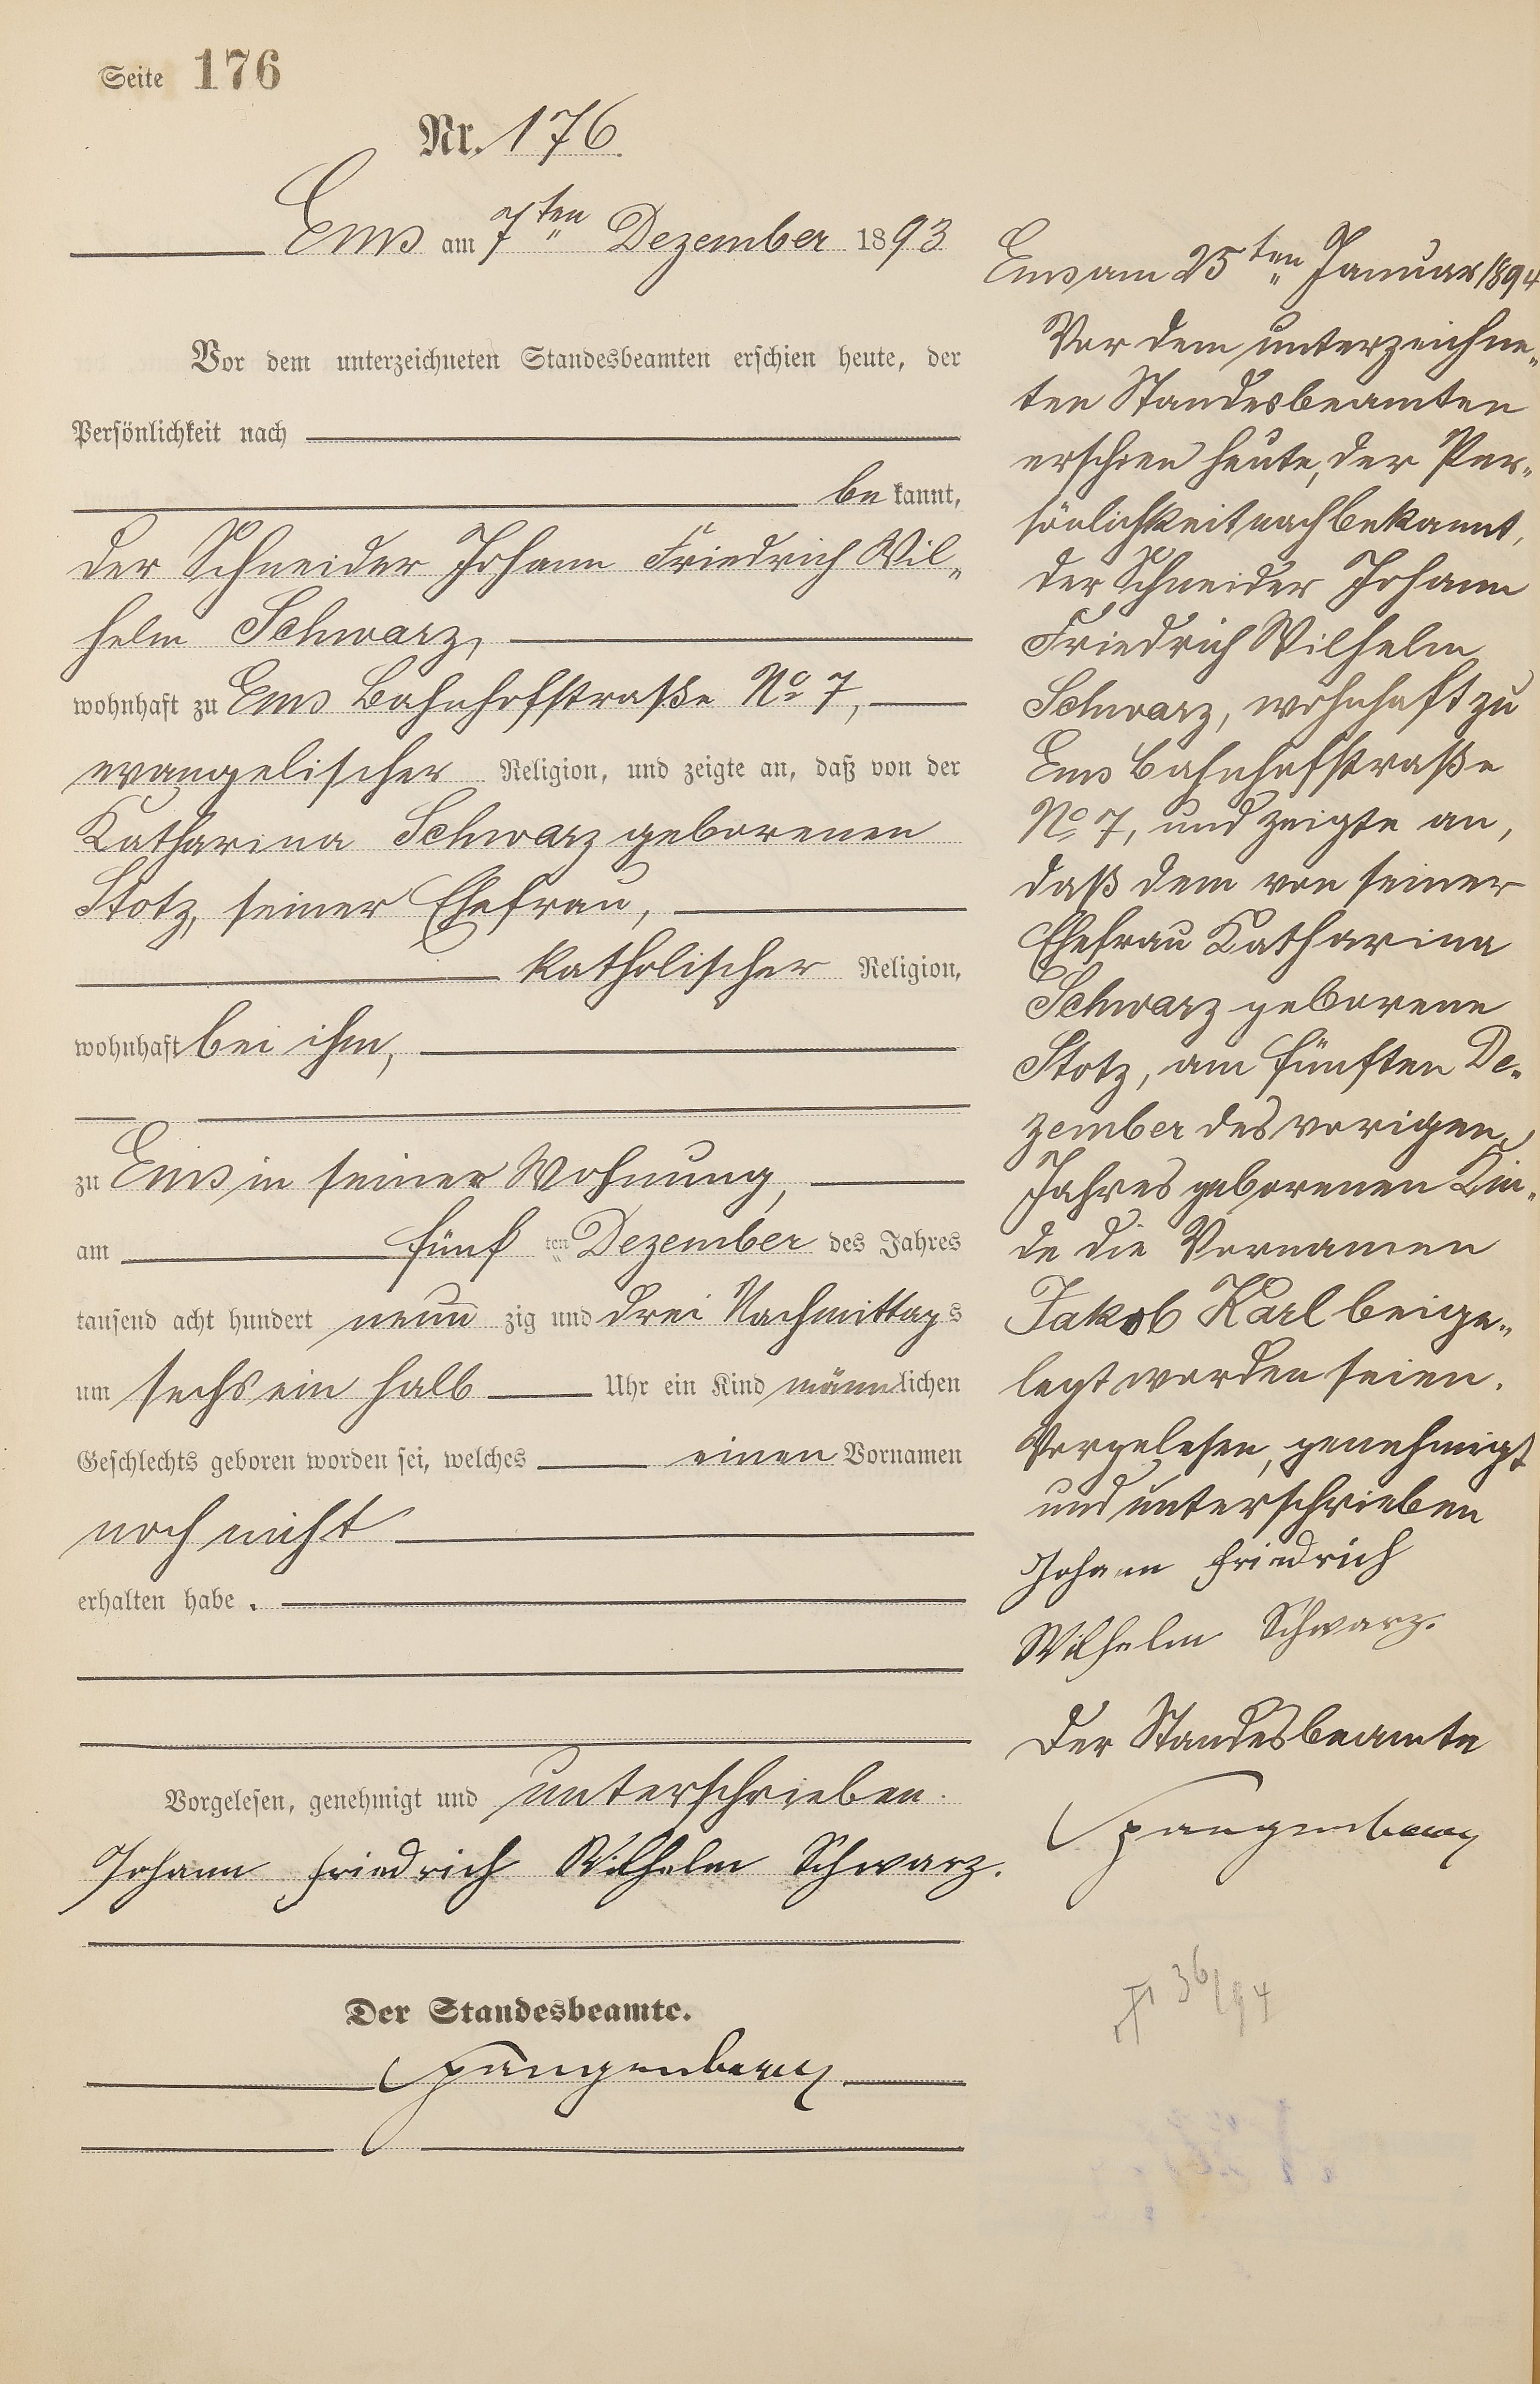 Seite 176
Nr. 176.
Ems am 7ten Dezember 1893
Vor dem unterzeichneten Standesbeamten erschien heute, der
Persönlichkeit nach
bekannt,
der Schneider Johann Friedrich Wil„
helm Schwarz,
wohnhaft zu Ems Bahnhofstraße No 7,
evangelischer Religion, und zeigte an, daß von der
Katharina Schwarz geborenen
Stotz, seiner Ehefrau,
katholischer Religion,
wohnhaft bei ihm,
zu Ems in seiner Wohnung,
am fünften Dezember des Jahres
tausend acht hundert neunzig und drei Nachmittags
um sechs ein halb Uhr ein Kind männlichen
Geschlechts geboren worden sei, welches einen Vornamen
noch nicht
erhalten habe.
Vorgelesen, genehmigt und unterschrieben.
Johann Friedrich Wilhelm Schwarz.
Der Standesbeamte.
Spangenberg
Ems am 25ten Januar 1894
Vor dem unterzeichne„
ten Standesbeamten
erschien heute, der Per„
sönlichkeit nach bekannt,
der Schneider Johann
Friedrich Wilhelm
Schwarz, wohnhaft zu
Ems Bahnhofstraße
No 7, und zeigte an,
daß dem von seiner
Ehefrau Katharina
Schwarz geborene
Stotz, am fünften De„
zember des vorigen
Jahres geborenen Kin„
de die Vornamen
Jakob Karl beige„
legt worden seien.
Vorgelesen, genehmigt
und unterschrieben
Johann Friedrich
Wilhelm Schwarz.
Der Standesbeamte
Spangenberg
36/94